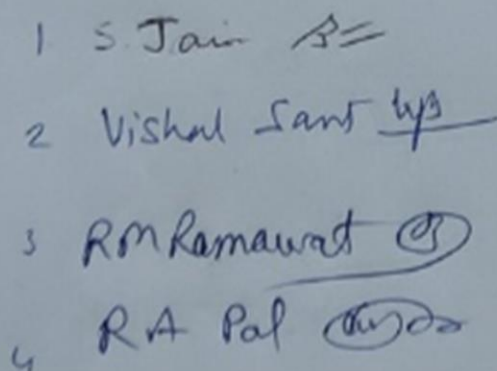 1 S. Jain
2 Vishal Sant
3 RM Ramawat
4 R A Pal